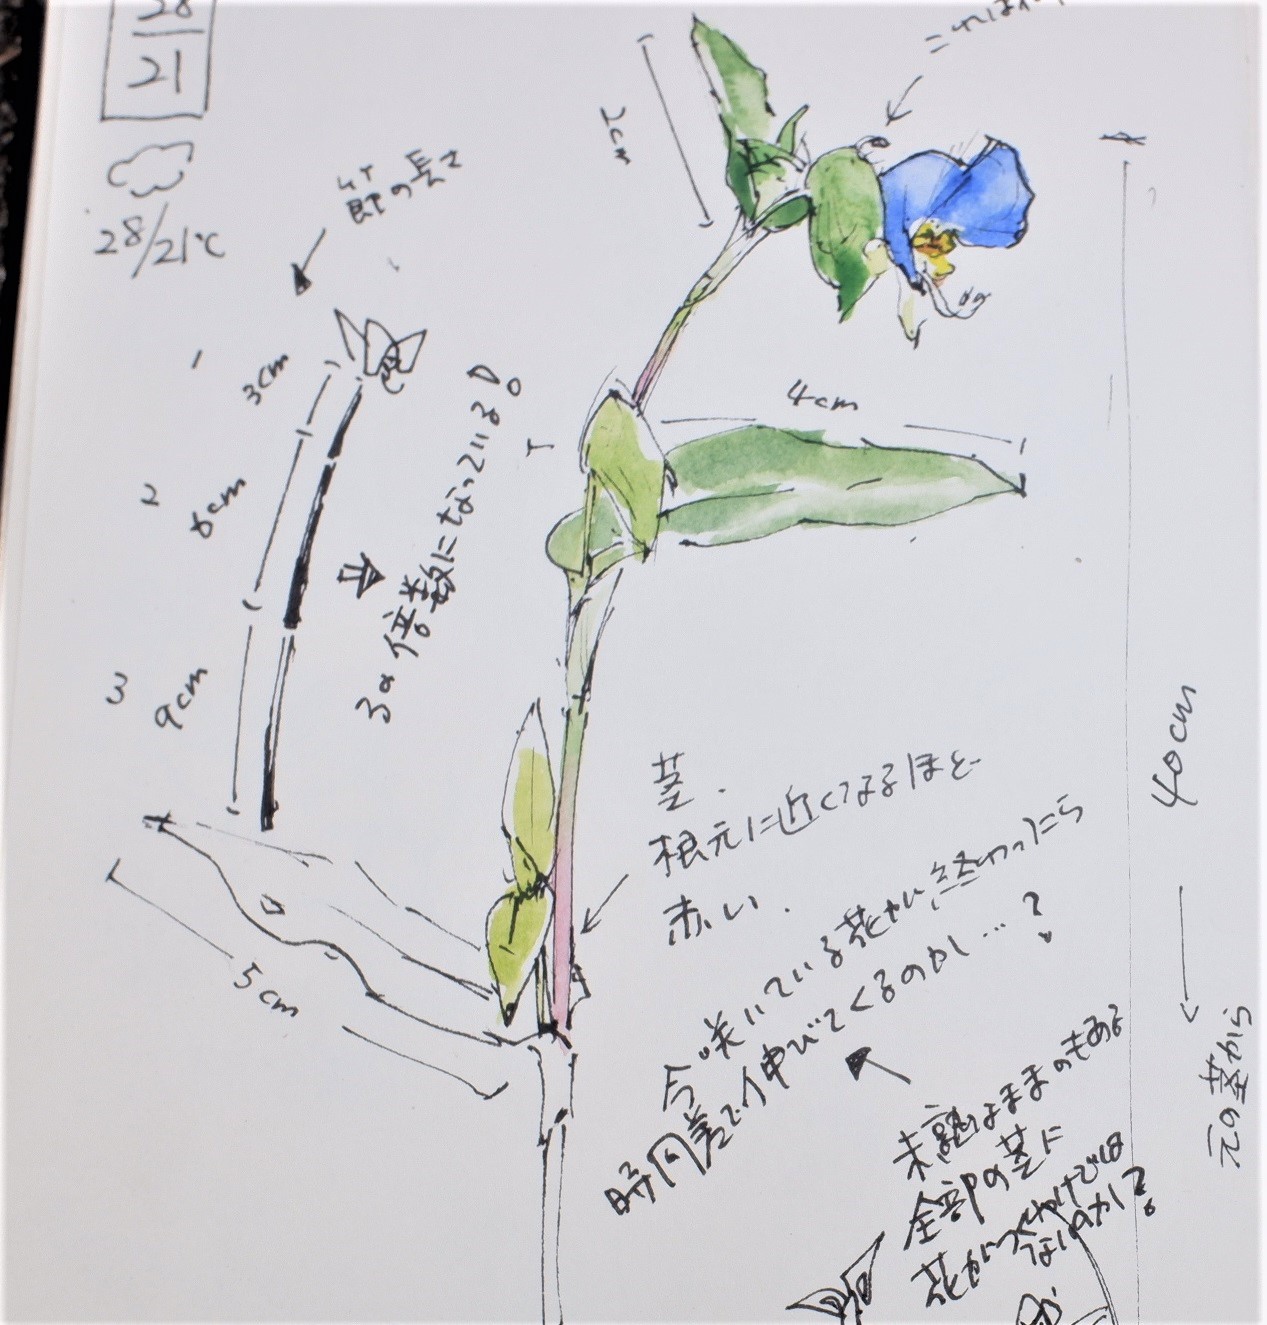 28
21
28/21℃
これは
節の長さ
1
3cm
2
6cm
3
9cm
3の倍数になっている!
2cm
4cm
茎.
根元に近くなるほど
赤い.
今咲いている花が終わったら
時間差で伸びてくるのかし…?
未熟なままのもある
全部の茎に
花がつくわけでは
ないのかし?
5cm
40cm
元の茎から